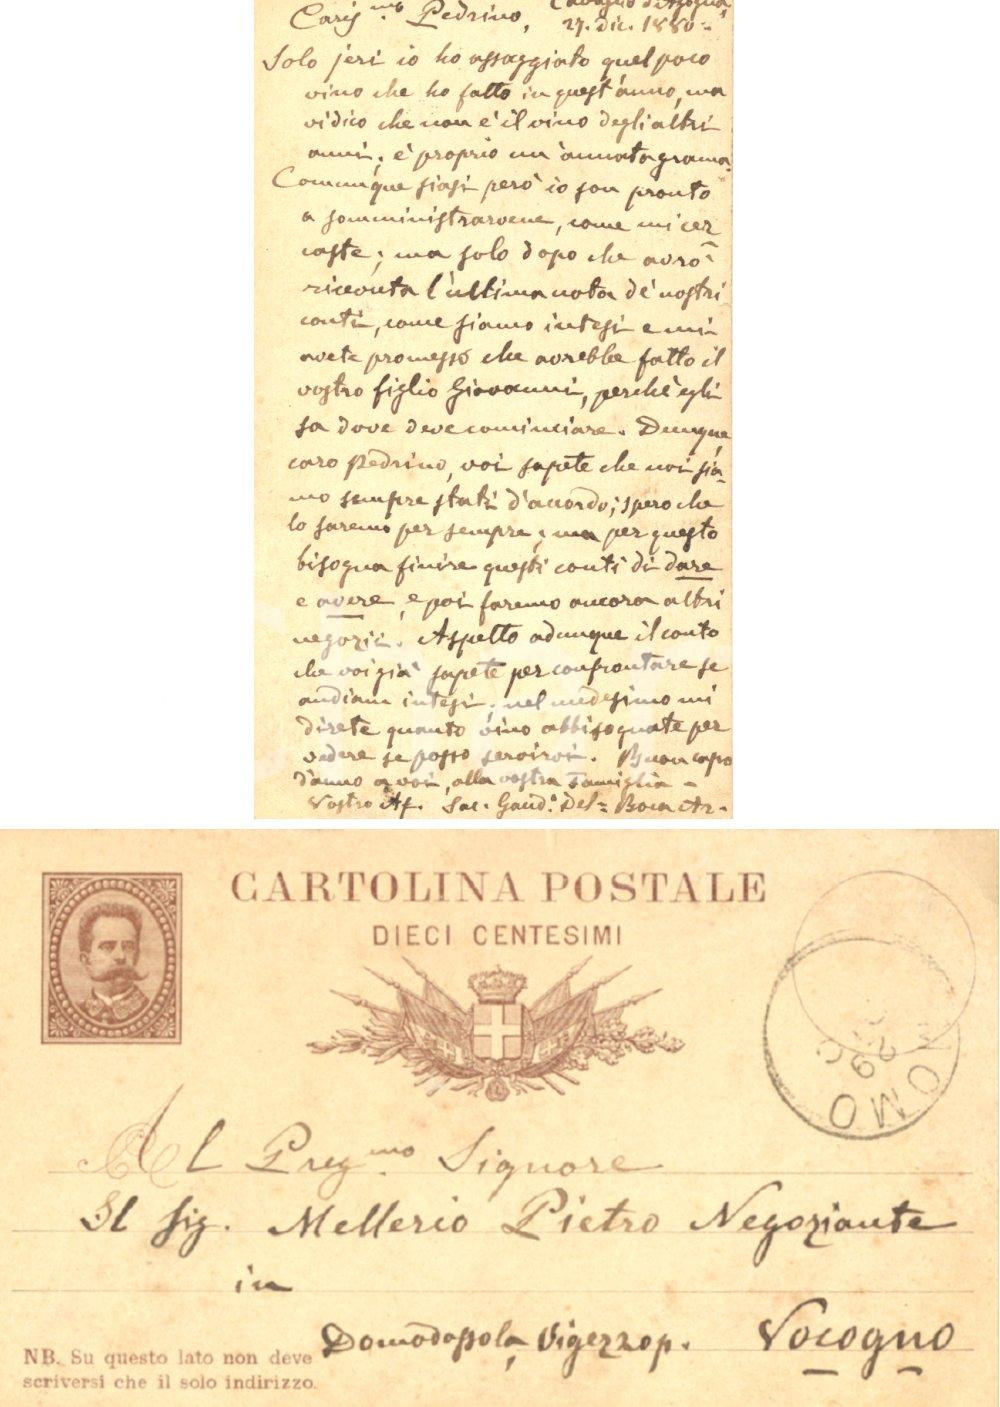 Caris.mo Pedrino, Cavaglio d'Agogna
27. Dic. 1880.
Solo jeri io ho assaggiato quel poco
vino che ho fatto in quest'anno, ma
vi dico che non è il vino degli altri
anni; è proprio un'annata grama.
Comunque siasi però io son pronto
a somministrarvene, come mi cer
caste; ma solo dopo che avrò
ricevuta l'ultima nota de' nostri
conti, come siamo intesi e mi
avete promesso che avrebbe fatto il
vostro figlio Giovanni, perchè egli
sa dove deve cominciare. Dunque,
caro Pedrino, voi sapete che noi sia-
mo sempre stati d'accordo; spero che
lo saremo per sempre; ma per questo
bisogna finire questi conti di dare
e avere, e poi faremo ancora altri
negozii. Aspetto adunque il conto
che voi già sapete per confrontare se
andiam intesi; nel medesimo mi
direte quanto vino abbisognate per
vedere se posso servirvi. Buon capo
d'anno a voi, alla vostra Famiglia -
Vostro Af. Sac. Gaud.o Del= Boca Ar.
CARTOLINA POSTALE
DIECI CENTESIMI
OMO
29
Al Preg.mo Signore
Il Sig. Mellerio Pietro Negoziante
in
Domodossola, Vigezzo p. Vocogno
NB. Su questo lato non deve
scriversi che il solo indirizzo.